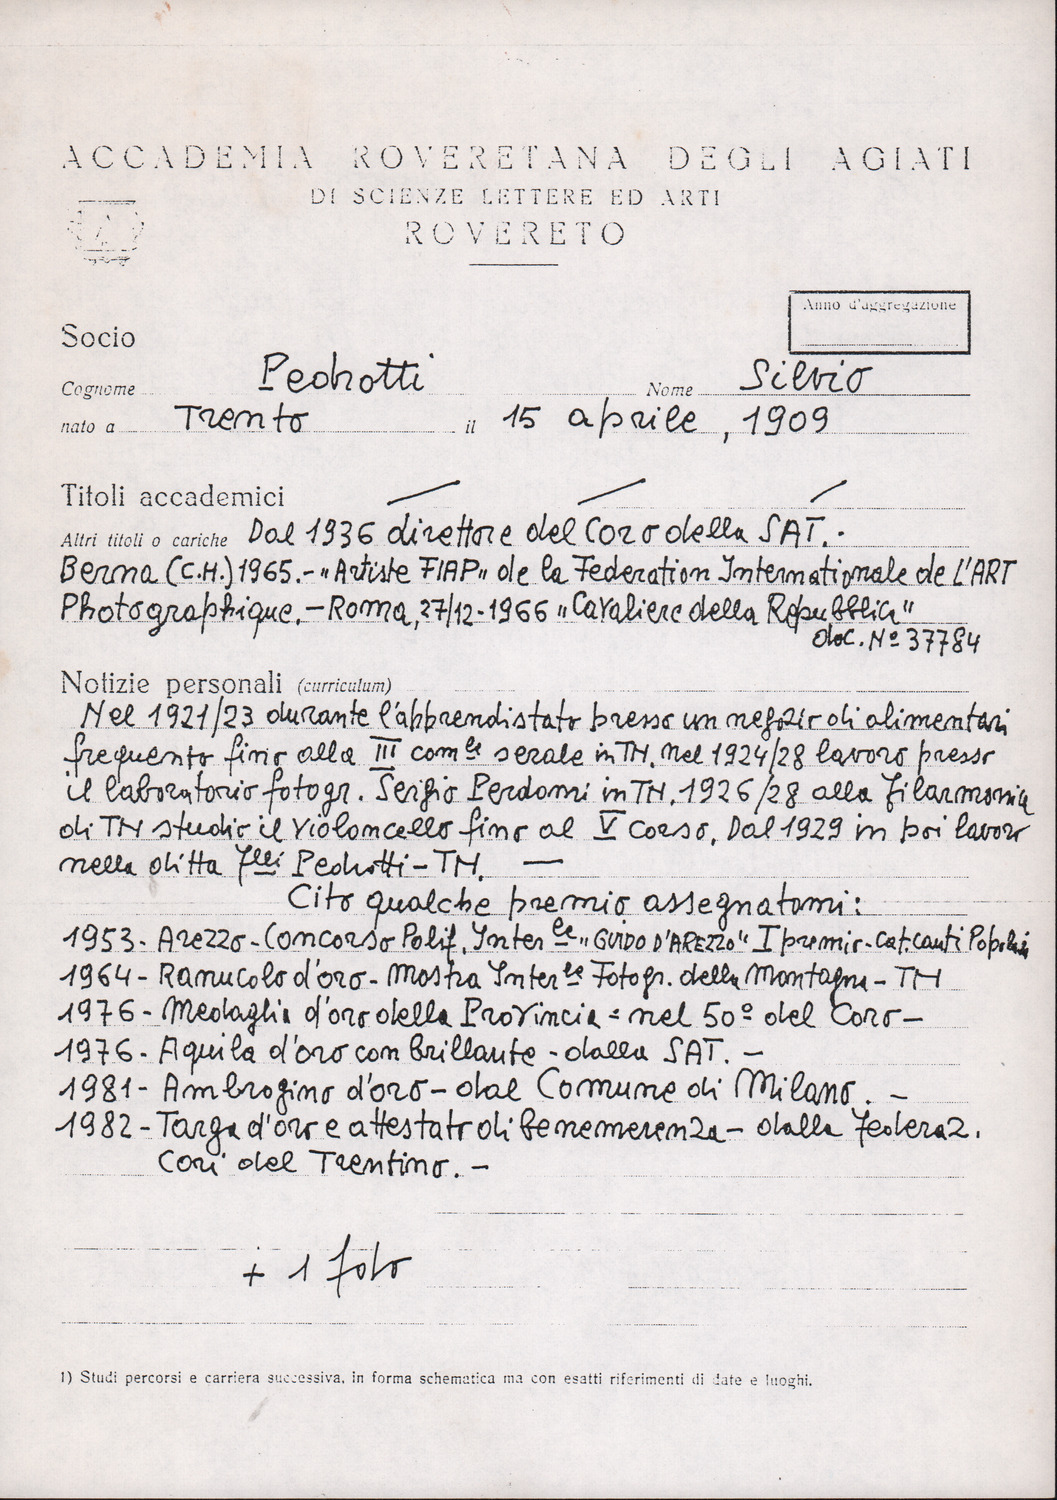 ACCADEMIA ROVERETANA DEGLI AGIATI
DI SCIENZE LETTERE ED ARTI
ROVERETO
Anno d'aggregazione
Socio
Cognome Pedrotti Nome Silvio
nato a Trento il 15 aprile, 1909
Titoli accademici
Altri titoli o cariche Dal 1936 direttore del Coro della SAT.-
Berna (C.H.) 1965.- "Artiste FIAP" de la Federation Internationale de L'ART
Photographique. - Roma, 27/12-1966 "Cavaliere della Repubblica"
doc. Nº 37784
Notizie personali (curriculum)
Nel 1921/23 durante l'apprendistato presso un negozio di alimentari
frequento fino alla III comle serale in TN. Nel 1924/28 lavoro presso
il laboratorio fotogr. Sergio Perdomi in TN. 1926/28 alla Filarmonica
di TN studio il violoncello fino al V corso. Dal 1929 in poi lavoro
nella ditta Flli Pedrotti - TN. —
Cito qualche premio assegnatomi:
1953 - Arezzo - Concorso Polif. Interle "GUIDO D'AREZZO" I premio - cat. canti Popolari
1964 - Ranucolo d'oro - Mostra Interle Fotogr. della Montagna - TN
1976 - Medaglia d'oro della Provincia = nel 50º del Coro -
1976 - Aquila d'oro con brillante - dalla SAT. -
1981 - Ambrogino d'oro - dal Comune di Milano. -
1982 - Targa d'oro e attestato di benemerenza - dalla Federaz.
Cori del Trentino. -
+ 1 foto
1) Studi percorsi e carriera successiva, in forma schematica ma con esatti riferimenti di date e luoghi.